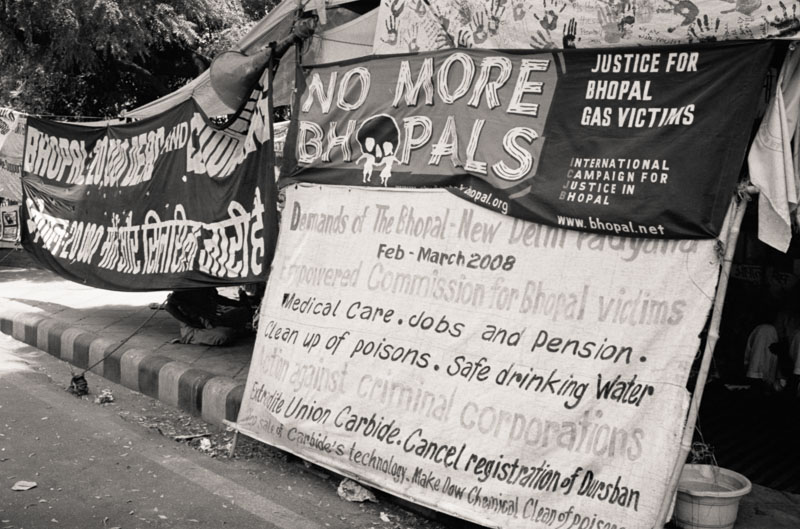 BHOPAL: 20,000 DEAD AND COUNTING
भोपाल: 20,000 मौतें और सिलसिला जारी है
NO MORE
BHOPALS
JUSTICE FOR
BHOPAL
GAS VICTIMS
INTERNATIONAL
CAMPAIGN FOR
JUSTICE IN
BHOPAL
www.bhopal.net
bhopal.org
Demands of The Bhopal-New Delhi Padyatra
Feb - March 2008
Empowered Commission for Bhopal victims
Medical Care. Jobs and Pension.
Clean up of poisons. Safe drinking Water
Action against criminal corporations
Extradite Union Carbide. Cancel registration of Dursban
sale of Carbide's technology. Make Dow Chemical Clean of poisons